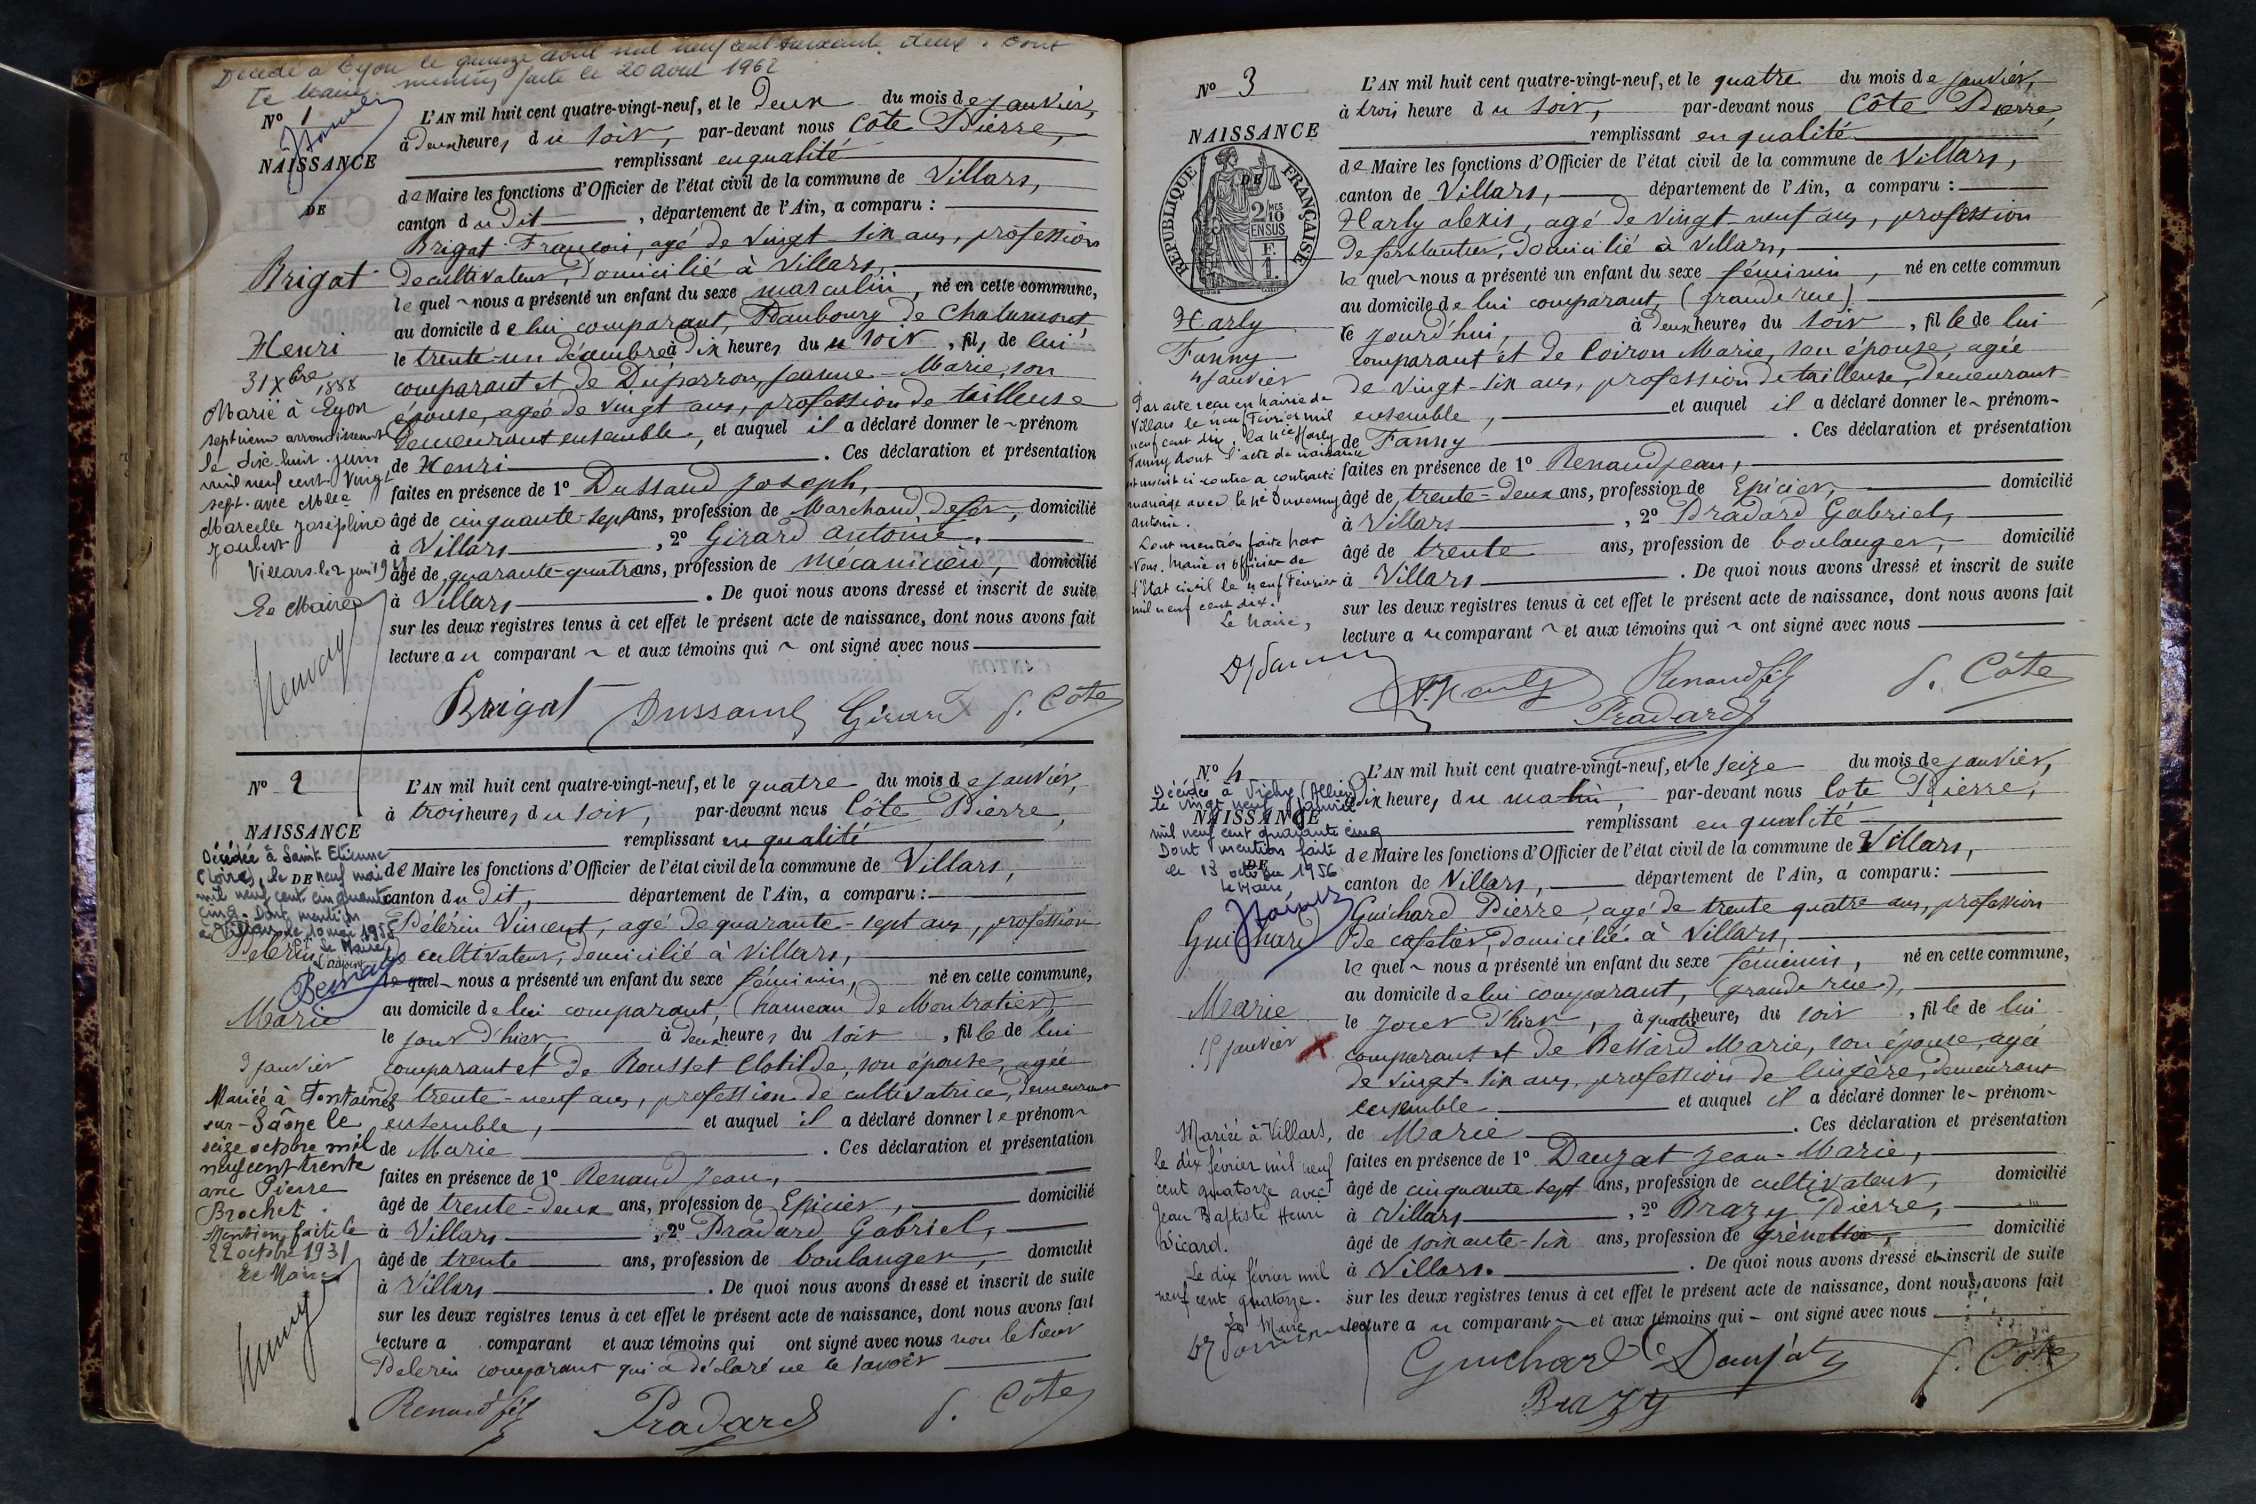 Décédé à Lyon le quinze août mil neuf cent soixante deux. Dont
mention faite le 20 août 1962
Le Maire
N° 1
NAISSANCE
DE
Brigat
Henri
31 Xbre 1888
Marié à Lyon
septième arrondissement
le dix-huit juin
mil neuf cent vingt
sept avec Mlle
Marcelle Joséphine
Joubert
Villars le 2
Le Maire
L'AN mil huit cent quatre-vingt-neuf, et le Deux du mois de janvier,
à Deux heures du soir, par-devant nous Côte Pierre,
remplissant en qualité
de Maire les fonctions d'Officier de l'état civil de la commune de Villars,
canton du Dit, département de l'Ain, a comparu :
Brigat François, agé de vingt six ans, profession
de cultivateur, domicilié à Villars,
lequel nous a présenté un enfant du sexe masculin, né en cette commune,
au domicile de lui comparant, Faubourg de Chalamont,
le trente-un décembre à dix heures du soir, fils de lui
comparant et de Duperron Jeanne-Marie, son
épouse, agée de vingt ans, profession de tailleuse
demeurant ensemble, et auquel il a déclaré donner le prénom
de Henri. Ces déclaration et présentation
faites en présence de 1° Dussaud Joseph,
âgé de cinquante-sept ans, profession de Marchand de fer, domicilié
à Villars, 2° Girard Antoine,
âgé de quarante-quatre ans, profession de mécanicien, domicilié
à Villars. De quoi nous avons dressé et inscrit de suite
sur les deux registres tenus à cet effet le présent acte de naissance, dont nous avons fait
lecture au comparant et aux témoins qui ont signé avec nous
Brigat Dussaud Girard P. Côte
N° 2
NAISSANCE
DE
Décédée à Saint Etienne
(Loire), le neuf mai
mil neuf cent cinquante
cinq. Dont mention
à Villars, le 10 mai 1955
le Maire
l'adjoint
Pelerin
Marie
3 janvier
Mariée à Fontaines
sur-Saône le
seize octobre mil
neuf cent trente
avec Pierre
Brochet.
Mention faite le
22 octobre 1931
Le Maire
L'AN mil huit cent quatre-vingt-neuf, et le quatre du mois de janvier,
à trois heures du soir, par-devant nous Côte Pierre,
remplissant en qualité
de Maire les fonctions d'Officier de l'état civil de la commune de Villars,
canton du Dit, département de l'Ain, a comparu :
Pélérin Vincent, agé de quarante-sept ans, profession
de cultivateur, domicilié à Villars,
lequel nous a présenté un enfant du sexe féminin, né en cette commune,
au domicile de lui comparant, (hameau de Montratier)
le jour d'hier, à deux heures du soir, fille de lui
comparant et de Rousset Clotilde, son épouse, agée
de trente-neuf ans, profession de cultivatrice, demeurant
ensemble, et auquel il a déclaré donner le prénom
de Marie. Ces déclaration et présentation
faites en présence de 1° Renaud Jean,
âgé de trente-deux ans, profession de Epicier, domicilié
à Villars, 2° Pradard Gabriel,
âgé de trente ans, profession de boulanger, domicilié
à Villars. De quoi nous avons dressé et inscrit de suite
sur les deux registres tenus à cet effet le présent acte de naissance, dont nous avons fait
lecture a comparant et aux témoins qui ont signé avec nous non le sieur
Pelerin comparant qui a déclaré ne le savoir
Renaud fils Pradard P. Côte
N° 3
NAISSANCE
DE
REPUBLIQUE FRANÇAISE
2 MES
10
EN SUS
F.
1.
Harly
Fanny
4 janvier
Par acte reçu en mairie de
Villars le neuf Février mil
neuf cent dix, la née Harly
Fanny dont l'acte de naissance
est inscrit ci contre a contracté
mariage avec le né Duvernay
Antoine.
Dont mention faite par
Nous, Maire et officier de
l'Etat civil le neuf Février
mil neuf cent dix.
Le Maire,
L'AN mil huit cent quatre-vingt-neuf, et le quatre du mois de janvier,
à trois heure du soir, par-devant nous Côte Pierre,
remplissant en qualité
de Maire les fonctions d'Officier de l'état civil de la commune de Villars,
canton de Villars, département de l'Ain, a comparu :
Harly alexis, agé de vingt neuf ans, profession
de ferblantier, domicilié à Villars,
lequel nous a présenté un enfant du sexe féminin, né en cette commun
au domicile de lui comparant, (grande rue)
le jourd'hui, à deux heures du soir, fille de lui
comparant et de Coiron Marie, son épouse, agée
de vingt-six ans, profession de tailleuse, demeurant
ensemble, et auquel il a déclaré donner le prénom
de Fanny. Ces déclaration et présentation
faites en présence de 1° Renaud jean,
âgé de trente-deux ans, profession de Epicier, domicilié
à Villars, 2° Pradard Gabriel,
âgé de trente ans, profession de boulanger, domicilié
à Villars. De quoi nous avons dressé et inscrit de suite
sur les deux registres tenus à cet effet le présent acte de naissance, dont nous avons fait
lecture au comparant et aux témoins qui ont signé avec nous
A. Harly Renaud fils P. Côte
Pradard
N° 4
Décédée à Vichy (Allier)
le vingt neuf Janvier
NAISSANCE
mil neuf cent quarante cinq
Dont mention faite
DE
le 13 octobre 1956
le Maire
Guichard
Marie
15 janvier
Mariée à Villars,
le dix février mil neuf
cent quatorze avec
Jean Baptiste Henri
Picard.
Le dix février mil
neuf cent quatorze.
Le Maire
L'AN mil huit cent quatre-vingt-neuf, et le seize du mois de janvier,
à dix heures du matin, par-devant nous Cote Pierre,
remplissant en qualité
de Maire les fonctions d'Officier de l'état civil de la commune de Villars,
canton de Villars, département de l'Ain, a comparu :
Guichard Pierre, agé de trente quatre ans, profession
de cafetier, domicilié à Villars,
lequel nous a présenté un enfant du sexe féminin, né en cette commune,
au domicile de lui comparant, (grande rue),
le jour d'hier, à quatre heures du soir, fille de lui
comparant et de Bessard Marie, son épouse, agée
de vingt-six ans, profession de lingère, demeurant
ensemble et auquel il a déclaré donner le prénom
de Marie. Ces déclaration et présentation
faites en présence de 1° Dauzat Jean-Marie,
âgé de cinquante sept ans, profession de cultivateur, domicilié
à Villars, 2° Brazy Pierre,
âgé de soixante-six ans, profession de domicilié
à Villars. De quoi nous avons dressé et inscrit de suite
sur les deux registres tenus à cet effet le présent acte de naissance, dont nous avons fait
lecture au comparant et aux témoins qui ont signé avec nous
Guichard Daujat P. Côte
Brazy